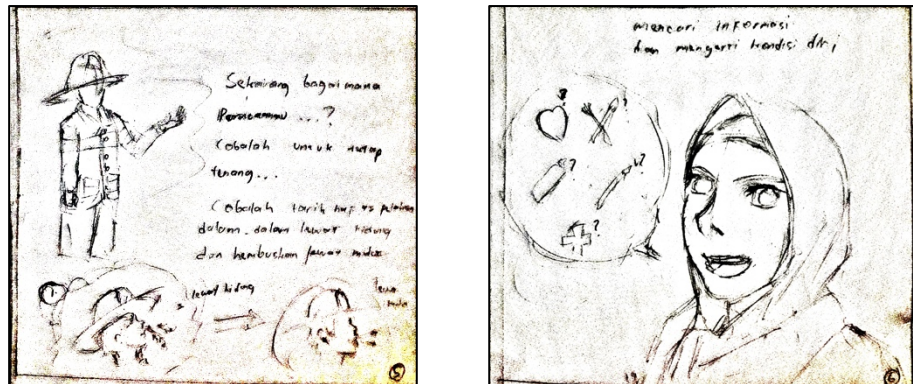 Sekarang bagaimana
Perasaanmu ...?
Cobalah untuk tetap
tenang...
Cobalah tarik nafas
dalam-dalam lewat hidung
dan hembuskan lewat mulut
lewat hidung
lewat
mulut
5
mencari informasi
dan mengerti kondisi diri
?
?
?
?
?
6